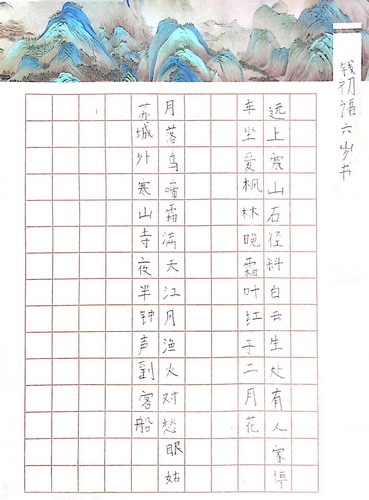 钱初语六岁书
远上寒山石径斜白云生处有人家停
车坐爱枫林晚霜叶红于二月花
月落乌啼霜满天江月渔火对愁眠姑
苏城外寒山寺夜半钟声到客船